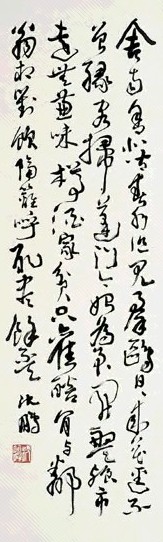 舍南舍北皆春水但见群鸥日日来花径不
曾缘客扫蓬门今始为君开盘飧市
远无兼味樽酒家贫只旧醅肯与邻
翁相对饮隔篱呼取尽余杯 沈鹏